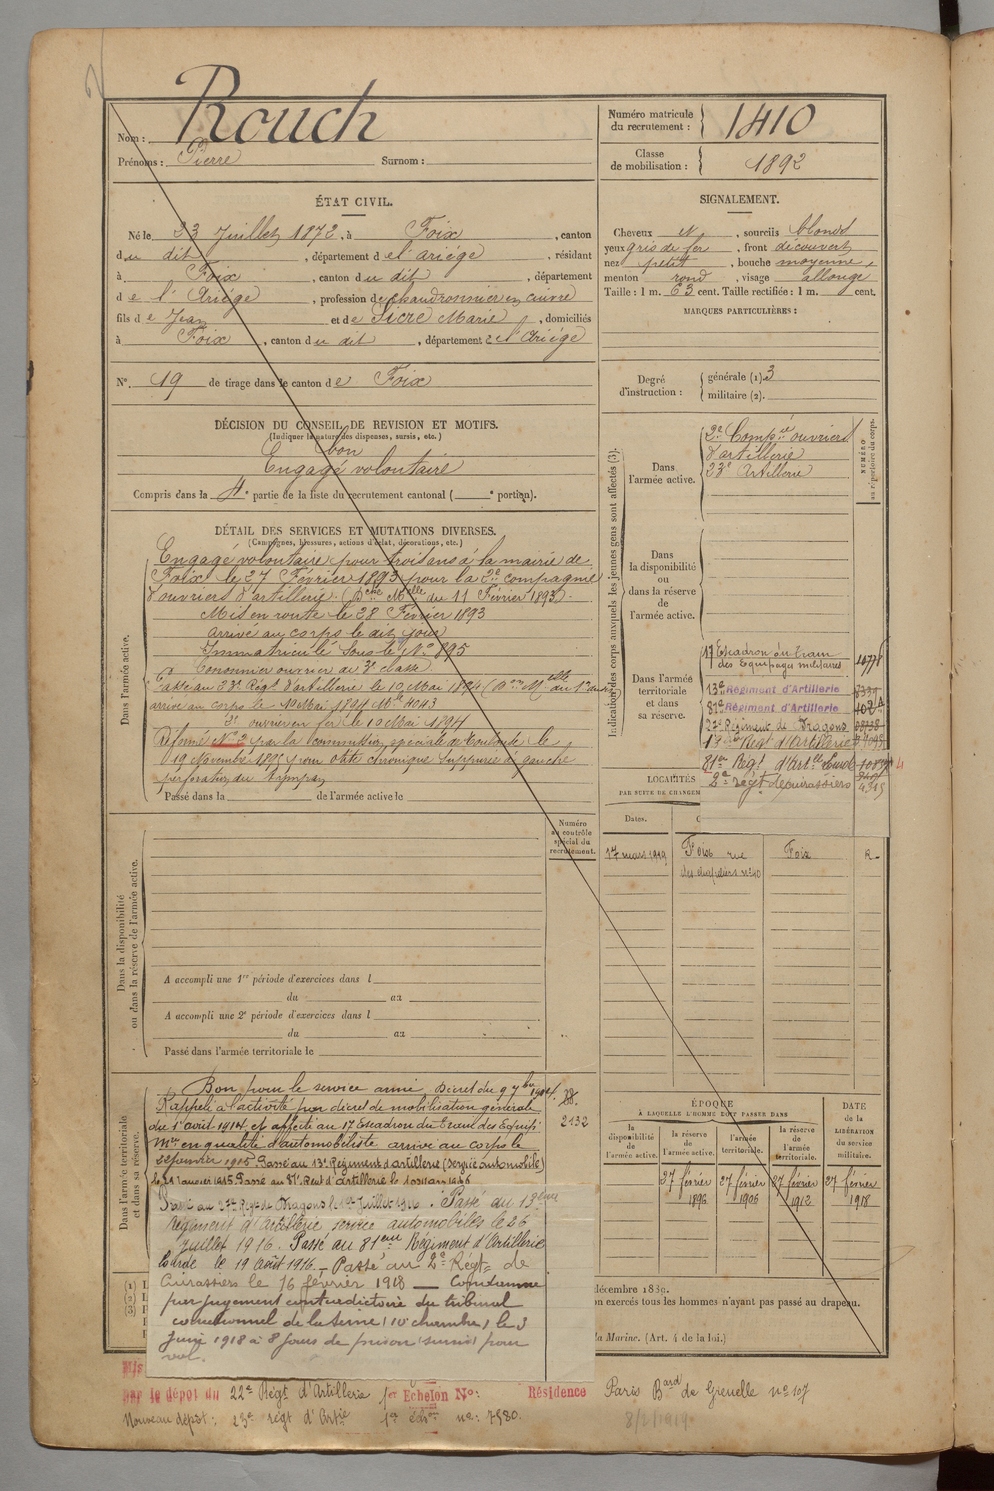 Nom : Rouch
Prénoms : Pierre Surnom :
Numéro matricule du recrutement : 1410
Classe de mobilisation : 1892
ÉTAT CIVIL.
Né le 23 Juillet 1872, à Foix, canton
du dit, département de l'ariége, résidant
à Foix, canton du dit, département
de l'Ariége, profession de chaudronnier en cuivre
fils de Jean et de Sicre Marie, domiciliés
à Foix, canton du dit, département de l'Ariége
N°. 19 de tirage dans le canton de Foix
DÉCISION DU CONSEIL DE REVISION ET MOTIFS.
(Indiquer la nature des dispenses, sursis, etc.)
bon
Engagé volontaire
Compris dans la 4e partie de la liste du recrutement cantonal ( e portion).
SIGNALEMENT.
Cheveux et, sourcils blonds
yeux gris de fer, front découvert
nez petit, bouche moyenne,
menton rond, visage allongé
Taille : 1 m. 63 cent. Taille rectifiée : 1 m. cent.
MARQUES PARTICULIÈRES :
Degré d'instruction : générale (1) 3
militaire (2).
DÉTAIL DES SERVICES ET MUTATIONS DIVERSES.
(Campagnes, blessures, actions d'éclat, décorations, etc.)
Dans l'armée active.
Engagé volontaire pour trois ans à la mairie de
Foix le 27 Février 1893 pour la 2e compagnie
d'ouvriers d'artillerie. (Dche Mlle du 11 Février 1893).
Mis en route le 28 Février 1893
arrivé au corps le dit jour
Immatriculé sous le No 895
Canonnier ouvrier de 3e classe
Passé au 23e Régt d'artillerie le 10 Mai 1894
arrivé au corps le 10 Mai 1894 Mle 4043
2e ouvrier en fer le 10 Mai 1894
Réformé No 2 par la commission spéciale de Toulouse le
19 Novembre 1895 pour otite chronique suppurée gauche
perforation du tympan
Passé dans la de l'armée active le
Indication des corps auxquels les jeunes gens sont affectés (3).
NUMÉRO au répertoire du corps.
Dans l'armée active.
2e Compie ouvriers
d'artillerie
23e Artillerie
Dans la disponibilité ou dans la réserve de l'armée active.
Dans l'armée territoriale et dans sa réserve.
17 Escadron du train
des Equipages militaires
13e Régiment d'Artillerie
81e Régiment d'Artillerie
27e Régiment de Dragons
13e Régt d'Artillerie
81e Régt d'Artie Lourde
2e régt de cuirassiers 4315
LOCALITÉS
PAR SUITE DE CHANGEM
Dates.
17 mars 1919 Foix rue Foix R.
des chapeliers no 40
Numéro au contrôle spécial du recrutement.
Dans la disponibilité ou dans la réserve de l'armée active.
A accompli une 1re période d'exercices dans l
du au
A accompli une 2e période d'exercices dans l
du au
Passé dans l'armée territoriale le
Dans l'armée territoriale et dans sa réserve.
Bon pour le service armé. Décret du 9 7bre 1914.
Rappelé à l'activité par décret de mobilisation générale
du 1er août 1914 et affecté au 17 Escadron du Train des Equip.
Mres en qualité d'automobiliste arrivé au corps le
février 1915 Passé au 13e Régiment d'artillerie (service automobile)
le 21 janvier 1915 Passé au 81e Régt d'artillerie le 10 mars 1916
2132
Passé au 27e Régt de Dragons le 1er Juillet 1916. Passé au 13ème
Régiment d'Artillerie service automobiles le 26
Juillet 1916. Passé au 81eme Régiment d'Artillerie
Lourde le 19 Août 1916. - Passé au 2e Régt de
Cuirassiers le 16 février 1918 — Condamné
par jugement contradictoire du tribunal
correctionnel de la Seine (10e chambre) le 3
Juin 1918 à 8 jours de prison (sursis) pour
vol.
ÉPOQUE
À LAQUELLE L'HOMME DOIT PASSER DANS
la disponibilité de l'armée active.
la réserve de l'armée active.
l'armée territoriale.
la réserve de l'armée territoriale.
DATE de la LIBÉRATION du service militaire.
27 février 1896
27 février 1906
27 février 1912
27 février 1918
(1)
(2)
(3)
décembre 1889.
n exercés tous les hommes n'ayant pas passé au drapeau.
la Marine. (Art. 4 de la loi.)
Mis
par le dépôt du 22e Régt d'Artillerie 1er Echelon No: Résidence Paris Bard de Grenelle no 107
Nouveau dépôt: 23e régt d'Artie 1er éch. no: 7580. 8/2/1919.